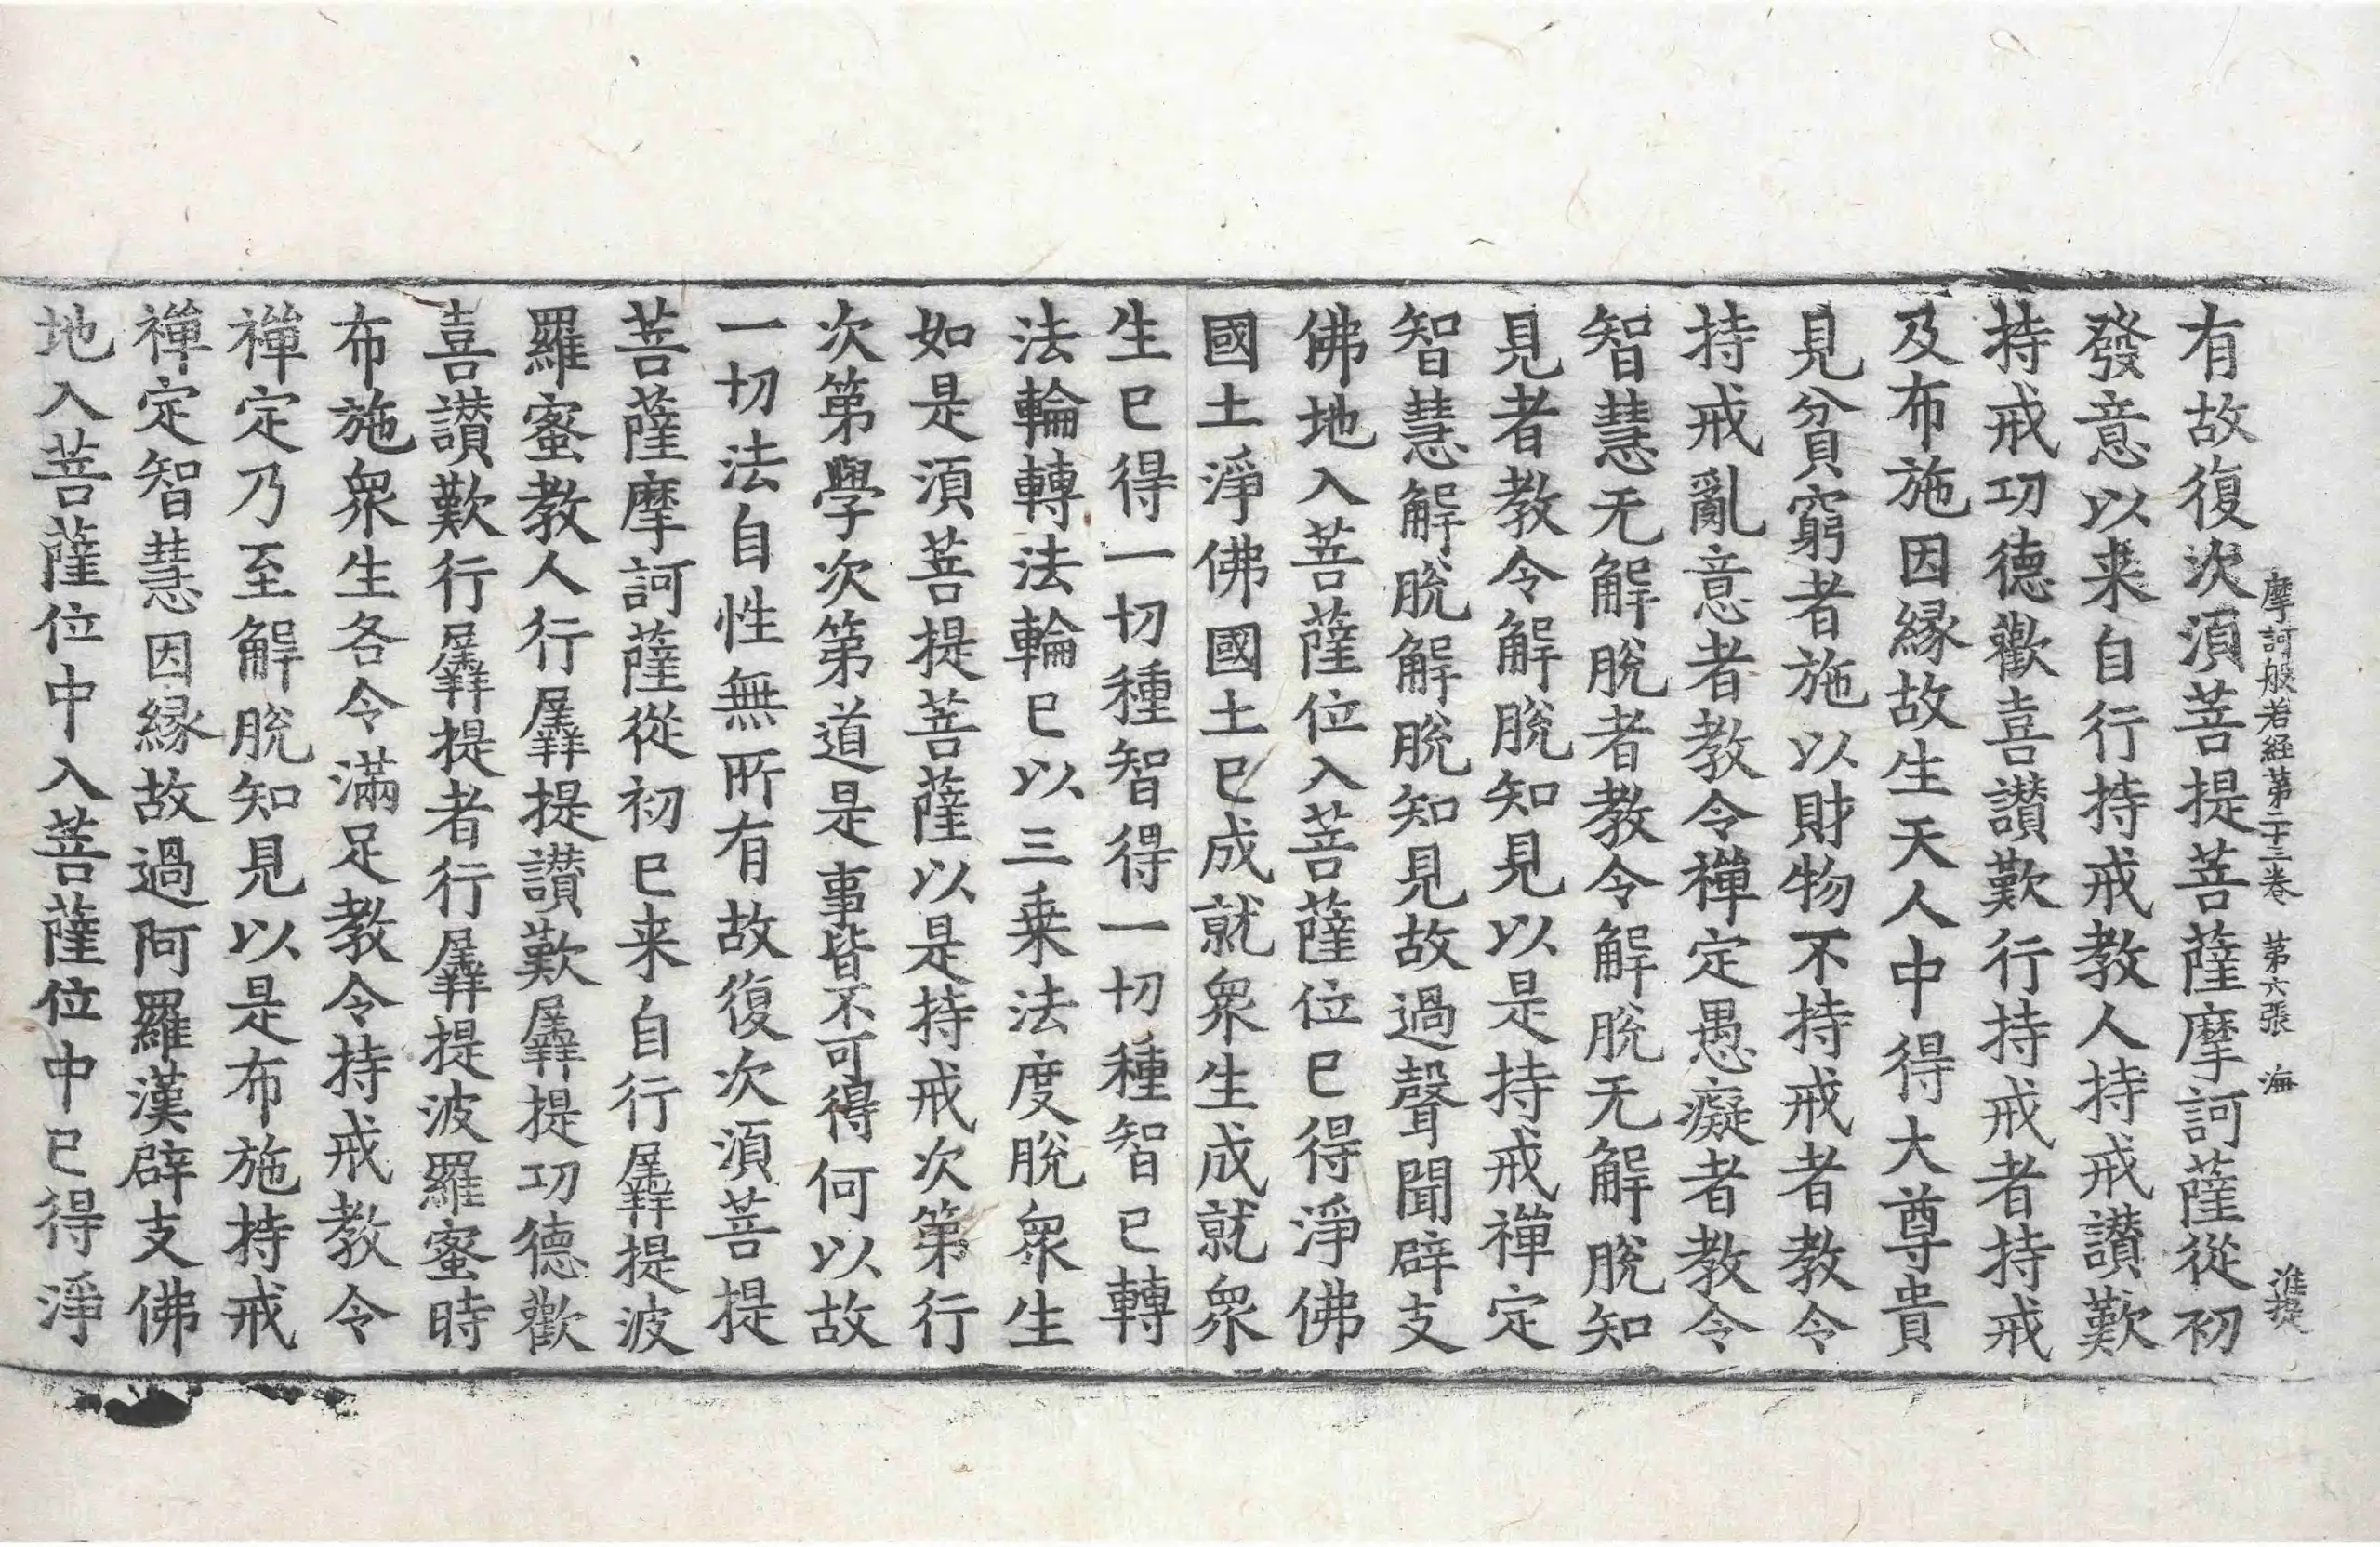 摩訶般若経第二十三卷 第六張 海
有故復次湏菩提菩薩摩訶薩從初
發意以来自行持戒教人持戒讃歎
持戒功德歡喜讃歎行持戒者持戒
及布施因縁故生天人中得大尊貴
見貧窮者施以財物不持戒者教令
持戒亂意者教令禪定愚癡者教令
智慧无解脫者教令解脫无解脫知
見者教令解脫知見以是持戒禪定
智慧解脫解脫知見故過聲聞辟支
佛地入菩薩位入菩薩位已得淨佛
國土淨佛國土已成就衆生成就衆
生已得一切種智得一切種智已轉
法輪轉法輪已以三乗法度脫衆生
如是湏菩提菩薩以是持戒次第行
次第學次第道是事皆不可得何以故
一切法自性無所有故復次湏菩提
菩薩摩訶薩從初已来自行羼提波
羅蜜教人行羼提讃歎羼提功德歡
喜讃歎行羼提者行羼提波羅蜜時
布施衆生各令滿足教令持戒教令
禪定乃至解脫知見以是布施持戒
禪定智慧因縁故過阿羅漢辟支佛
地入菩薩位中入菩薩位中已得淨